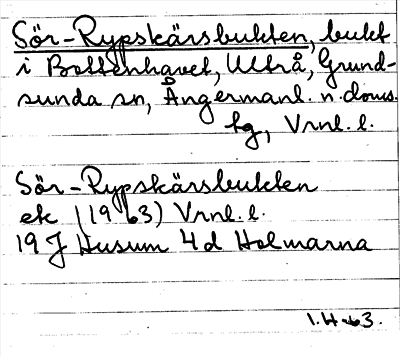 Sör-Rypskärsbukten, bukt
i Bottenhavet, Ultrå, Grund-
sunda sn, Ångermanl. n. doms.
tg, Vrnl. l.
Sör-Rypskärsbukten
ek (1963) Vrnl. l.
19 J Husum 4 d Holmarna
1.H-63.